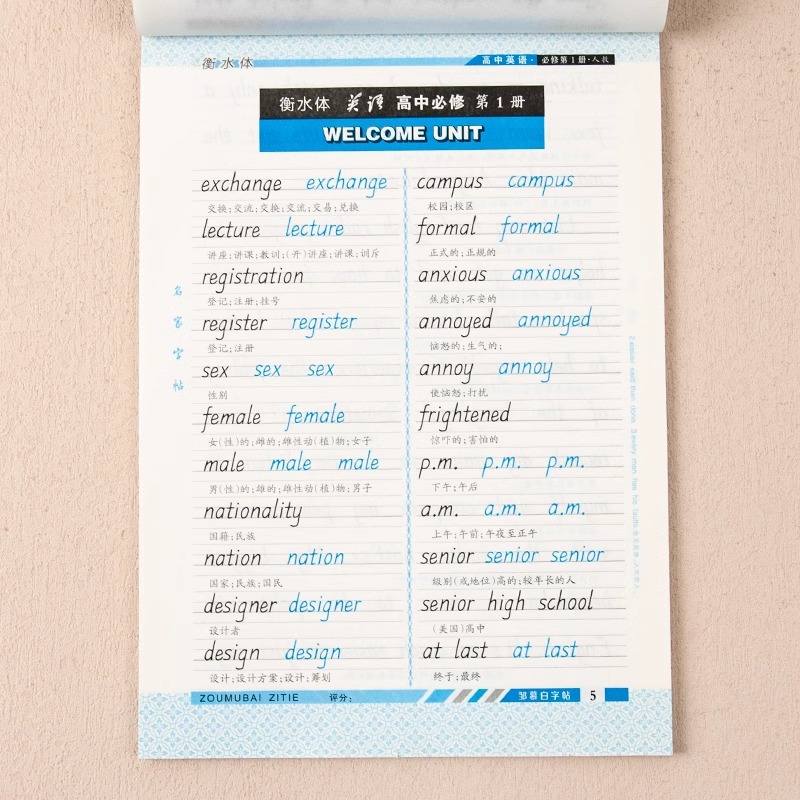 衡水体
高中英语·必修第1册·人教
衡水体 英语 高中必修 第1册
WELCOME UNIT
exchange exchange
交换;交流;交换;交流;交易;兑换
lecture lecture
讲座;讲课;教训;(开)讲座;讲课;训斥
registration
登记;注册;挂号
register register
登记;注册
sex sex sex
性别
female female
女(性)的;雌的;雌性动(植)物;女子
male male male
男(性)的;雄的;雄性动(植)物;男子
nationality
国籍;民族
nation nation
国家;民族;国民
designer designer
设计者
design design
设计;设计方案;设计;筹划
campus campus
校园;校区
formal formal
正式的;正规的
anxious anxious
焦虑的;不安的
annoyed annoyed
恼怒的;生气的;
annoy annoy
使恼怒;打扰
frightened
惊吓的;害怕的
p.m. p.m. p.m.
下午;午后
a.m. a.m. a.m.
上午;午前;午夜至正午
senior senior senior
级别(或地位)高的;较年长的人
senior high school
(美国)高中
at last at last
终于;最终
名家字帖
2.easier said than done. 3.every man has his faults.
ZOUMUBAI ZITIE 评分:
邹慕白字帖 5